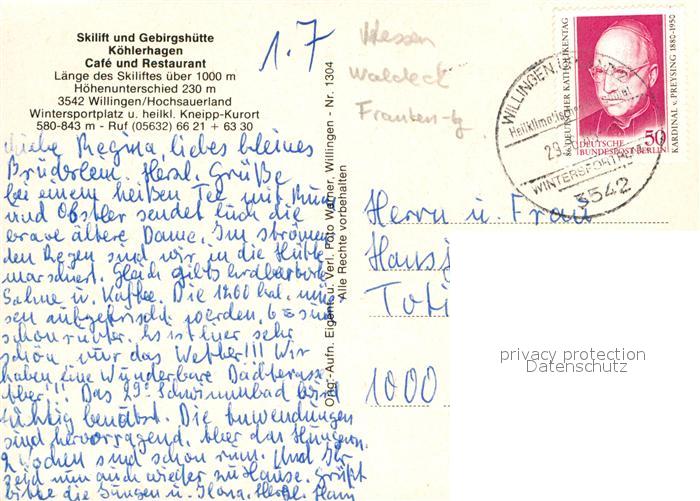 Skilift und Gebirgshütte
Köhlerhagen
Café und Restaurant
Länge des Skiliftes über 1000 m
Höhenunterschied 230 m
3542 Willingen/Hochsauerland
Wintersportplatz u. heilkl. Kneipp-Kurort
580-843 m - Ruf (05632) 66 21 + 63 30
1.7
Hessen
Waldeck
Franken-bg
Liebe Regina, liebes kleines
Brüderlein. Herzl. Grüße
bei einem heißen Tee mit Rum
und Obstler sendet Euch die
brave ältere Dame. Im strömen
den Regen sind wir in die Hütte
marschiert. Gleich gibts Erdbeeren
Sahne u. Kaffee. Die 1200 kal. müs
sen aufgefrischt werden, 6
schon runter. Es ist hier sehr
schön nur das Wetter!!! Wir
haben eine Wunderbare Dachterasse
aber!!! Das 29° Schwimmbad wird
tüchtig benutzt. Die Anwendungen
sind hervorragend. Aber das Hungern.
2 Wochen sind schon rum. Und Ihr
seid nun auch wieder zu Hause. Grüßt
bitte die Jungen u. Ilona. Herzl.
Orig.-Aufn. Eigent. u. Verl. Foto Warner, Willingen - Nr. 1304
Alle Rechte vorbehalten
WILLINGEN
Heilklimatischer
29
WINTERSPORT
3542
86. DEUTSCHER KATHOLIKENTAG
KARDINAL v. PREYSING 1880-1950
50
DEUTSCHE
BUNDESPOST BERLIN
Herrn u. Frau
Hansj
Toti
1000
privacy protection
Datenschutz